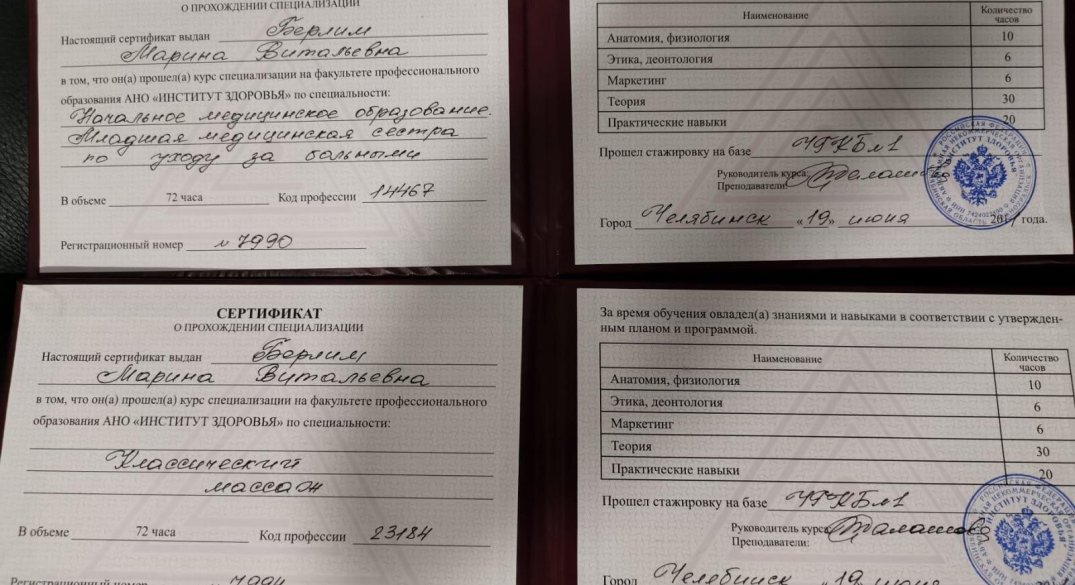 О ПРОХОЖДЕНИИ СПЕЦИАЛИЗАЦИИ
Настоящий сертификат выдан Берлим
Марина Витальевна
в том, что он(а) прошел(а) курс специализации на факультете профессионального
образования АНО «ИНСТИТУТ ЗДОРОВЬЯ» по специальности:
Начальное медицинское образование.
Младшая медицинская сестра
по уходу за больными
В объеме 72 часа Код профессии 14467
Регистрационный номер № 7990
Наименование Количество часов
Анатомия, физиология 10
Этика, деонтология 6
Маркетинг 6
Теория 30
Практические навыки 20
Прошел стажировку на базе ЧГКБ№1
Руководитель курса:
Преподаватели:
Город Челябинск «19» июня года.
ИНСТИТУТ ЗДОРОВЬЯ
СЕРТИФИКАТ
О ПРОХОЖДЕНИИ СПЕЦИАЛИЗАЦИИ
Настоящий сертификат выдан Берлим
Марина Витальевна
в том, что он(а) прошел(а) курс специализации на факультете профессионального
образования АНО «ИНСТИТУТ ЗДОРОВЬЯ» по специальности:
Классический
массаж
В объеме 72 часа Код профессии 23184
Регистрационный номер
За время обучения овладел(а) знаниями и навыками в соответствии с утвержден-
ным планом и программой.
Наименование Количество часов
Анатомия, физиология 10
Этика, деонтология 6
Маркетинг 6
Теория 30
Практические навыки 20
Прошел стажировку на базе ЧГКБ№1
Руководитель курса
Преподаватели:
Город Челябинск «19 июня
ИНСТИТУТ ЗДОРОВЬЯ